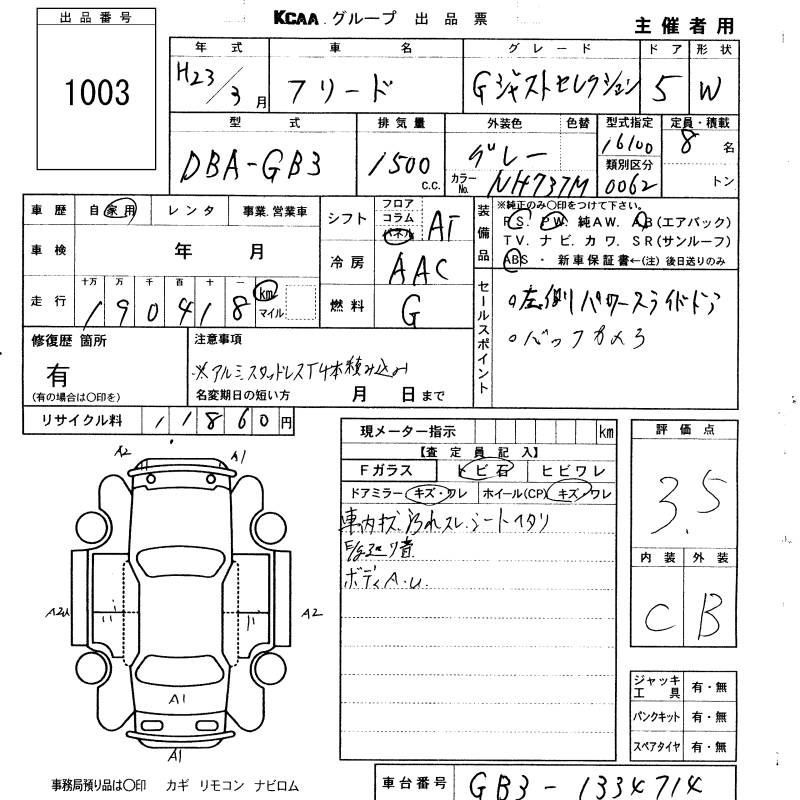 KCAA グループ 出品票
主催者用
出品番号
1003
年式 車名 グレード ドア 形状
H23/3月 フリード Gジャストセレクション 5 W
型式 排気量 外装色 色替 型式指定 定員・積載
DBA-GB3 1500 C.C. グレー 16100 8名
カラーNo. NH737M 類別区分 0062 トン
車歴 自家用 レンタ 事業.営業車
シフト フロア コラム パネル AT
装備品 ※純正のみ〇印をつけて下さい。
PS. PW. 純AW. AB(エアバック)
TV. ナビ. カワ. SR(サンルーフ)
ABS ・ 新車保証書←(注) 後日送りのみ
車検 年 月
冷房 AAC
走行 十万 万 千 百 十 一
190418 km マイル
燃料 G
セールスポイント
○左側パワースライドドア
○バックカメラ
修復歴 箇所
有
(有の場合は〇印を)
注意事項
※アルミスタッドレスT4本積み込み
名変期日の短い方 月 日まで
リサイクル料 11860円
現メーター指示 km
【査定員記入】
Fガラス トビ石 ヒビワレ
ドアミラー キズ・ワレ ホイール(CP) キズ・ワレ
車内キズ 汚れスレ シートヘタリ
ボディA.U.
評価点
3.5
内装 外装
C B
A2 A1
A2U A2
A1
A1
ジャッキ工具 有・無
パンクキット 有・無
スペアタイヤ 有・無
事務局預り品は〇印 カギ リモコン ナビロム
車台番号 GB3-1334714